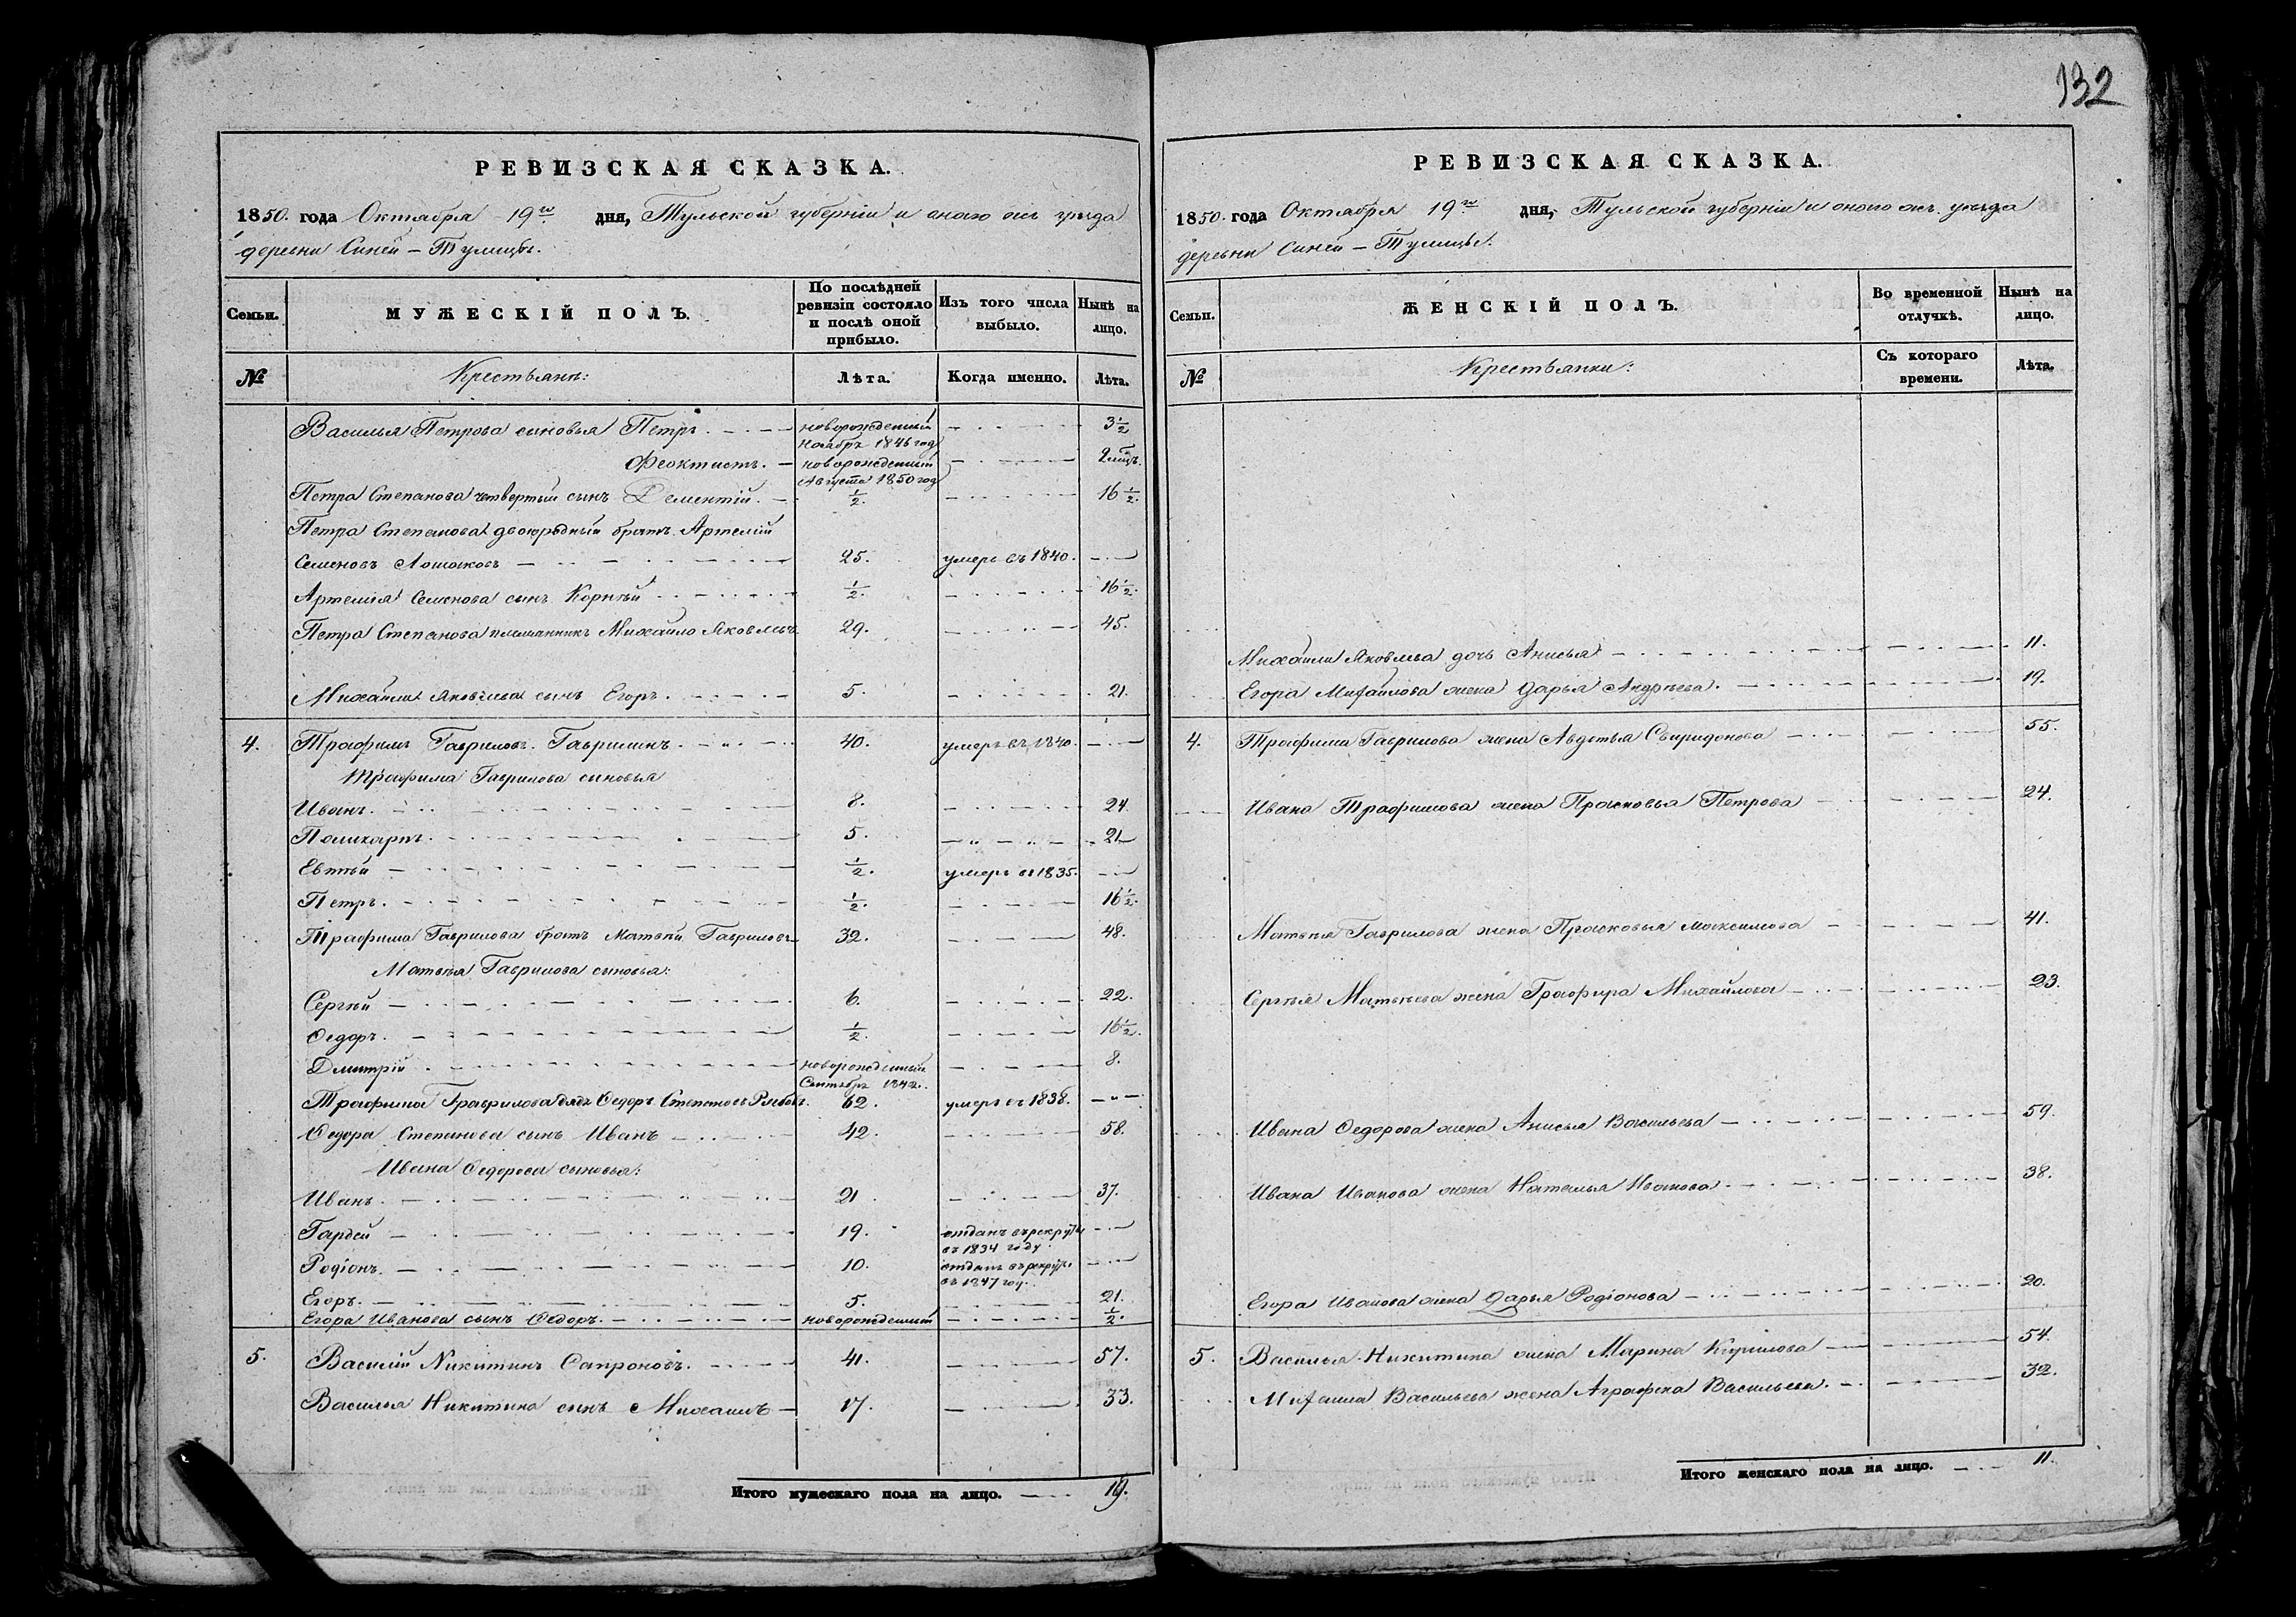 132
РЕВИЗСКАЯ СКАЗКА.
1850. года Октября 19го дня, Тульской губерніи и оного жъ уезда
деревни Синей – Тулицы.
Семьи. МУЖЕСКІЙ ПОЛЪ. По послѣдней ревизіи состояло и послѣ оной прибыло. Изъ того числа выбыло. Нынѣ на лицо.
№ Крестьянъ: Лѣта. Когда именно. Лѣта.
Василья Петрова сыновья Петръ. новорожденный Ноябръ 1846 год 3 1/2
Феоктистъ. новорожденный Августа 1850 год 2 мѣц.
Петра Степанова четвертый сынъ Дементій. 1/2. 16 1/2.
Петра Степанова двоюродный братъ Артемій
Семеновъ 25. умеръ въ 1840.
Артемія Семенова сынъ Корнѣй 1/2. 16 1/2.
Петра Степанова племянникъ Михайло Яковлевъ 29. 45.
Михайлы Яковлева сынъ Егоръ. 5. 21.
4. Трофимъ Гавриловъ Гаврилинъ. 40. умеръ въ 1840.
Трофима Гаврилова сыновья
Иванъ. 8. 24.
Поликарпъ. 5. 21
Евтѣй 1/2. умеръ въ 1835.
Петръ. 1/2. 16 1/2.
Трофима Гаврилова братъ Матвѣй Гавриловъ 32. 48.
Матвѣя Гаврилова сыновья:
Сергѣй 6. 22.
Федоръ. 1/2. 16 1/2.
Дмитрій новорожденный Сентябръ 1842. 8.
Трофима Гаврилова дядя Федоръ Степановъ 62. умеръ въ 1838.
Федора Степанова сынъ Иванъ 42. 58.
Ивана Федорова сыновья:
Иванъ. 21 37.
Гардей 19. отданъ въ рекруты въ 1834 году
Родіонъ. 10. отданъ въ рекрут. въ 1847 году.
Егоръ. 5. 21.
Егора Иванова сынъ Федоръ. новорожденный 1/2.
5. Василій Никитинъ Сапроновъ. 41. 57.
Василья Никитина сынъ Михаилъ 17. 33.
Итого мужескаго пола на лицо. 19.
РЕВИЗСКАЯ СКАЗКА.
1850. года Октября 19го дня, Тульской губерніи и оного жъ уезда
деревни Синей – Тулицы.
Семьи. ЖЕНСКІЙ ПОЛЪ. Во временной отлучкѣ. Нынѣ на лицо.
№ Крестьянки: Съ котораго времени. Лѣта.
Михайлы Яковлева дочь Анисья 11.
Егора Михайлова жена Дарья Андреева. 19.
4. Трофима Гаврилова жена Авдотья Свиридонова 55.
Ивана Трофимова жена Прасковья Петрова 24.
Матвѣя Гаврилова жена Прасковья Максимова 41.
Сергѣя Матвѣева жена Графира Михайлова 23.
Ивана Федорова жена Анисья Васильева 59.
Ивана Иванова жена Наталья Иванова 38.
Егора Иванова жена Дарья Родіонова 20.
5. Василья Никитина жена Марина Кирилова 54.
Михаила Васильева жена Аграфена Васильева. 32.
Итого женскаго пола на лицо. 11.